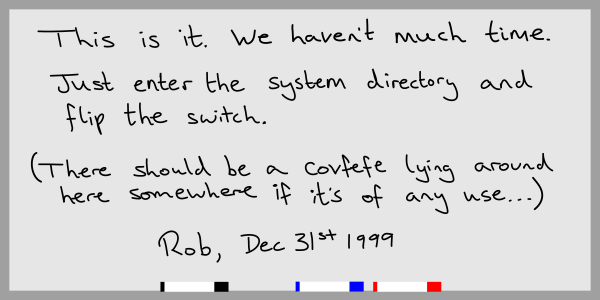 This is it. We haven't much time.
Just enter the system directory and
flip the switch.
(There should be a covfefe lying around
here somewhere if it's of any use...)
Rob, Dec 31st 1999